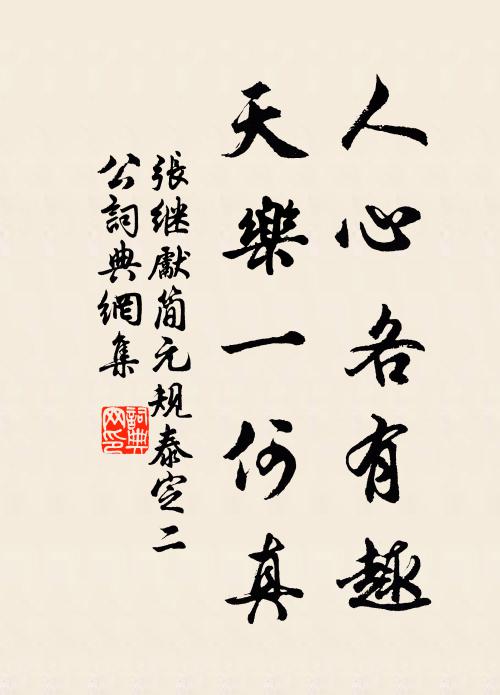 人心各有趣
天樂一何真
張继獻简元规泰定二
公詞典網集
詞典
网印